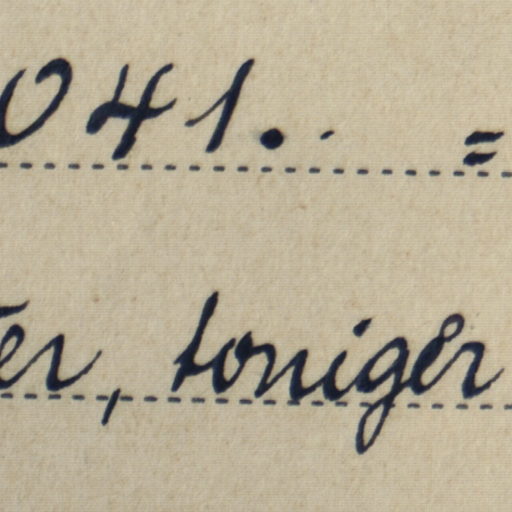 041. =
er, toniger